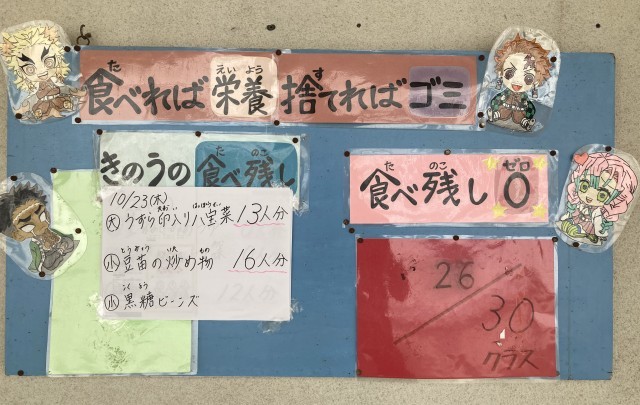 食べれば栄養捨てればゴミ
きのうの食べ残し
10/23(木)
大 うずら卵入り八宝菜 13人分
小 豆苗の炒め物 16人分
小 黒糖ビーンズ
12人分
食べ残し0
26/30
クラス